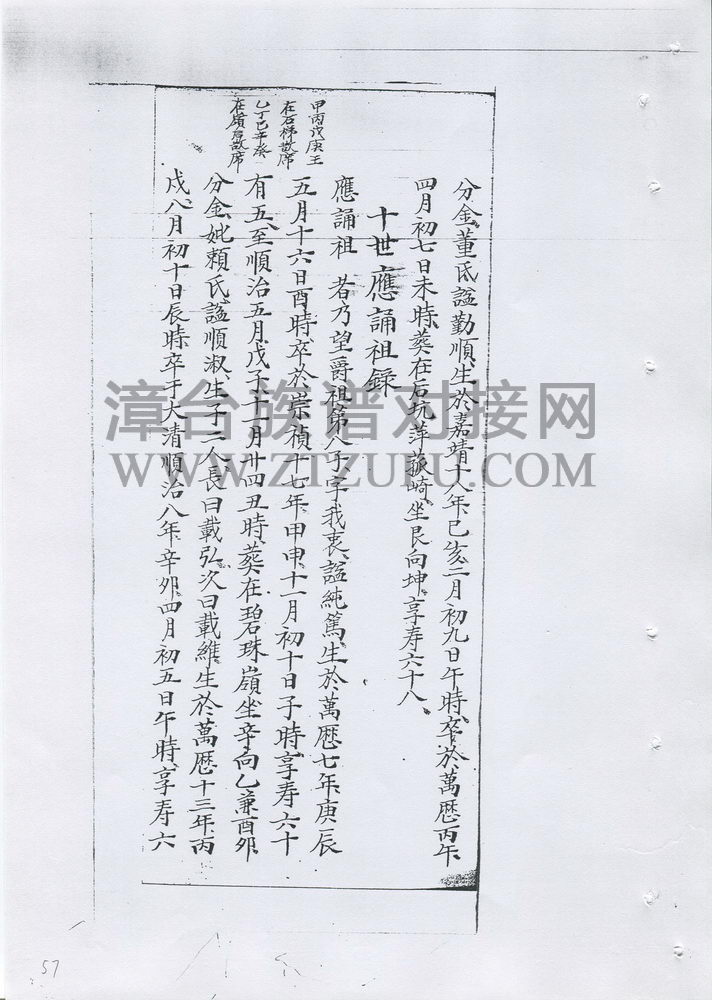 分金、董氏謚勤順、生於嘉靖十八年、己亥二月初九日午時、卒於萬歷丙午
四月初七日未時、葬在后坑萍菰崎、坐艮向坤、享寿六十八、
十世應誦祖錄
應誦祖 若乃望爵祖第八子字我衷、謚純篤、生於萬歷七年、庚辰
五月十六日酉時、卒於崇禎十七年、甲申、十一月初十日子時、享寿六十
有五、至順治五月、戊子、十一月廿四丑時、葬在碧珠嶺坐辛向乙兼酉卯
分金、妣賴氏、謚順淑、生子二人、長曰載弘、次曰載維、生於萬歷十三年、丙
戍、八月初十日辰時、卒于大清順治八年、辛卯、四月初五日午時、享寿六
甲丙戊庚壬
在石梯散席
乙丁己辛癸
在嶺后散席
漳台族谱对接网
WWW.ZTZUPU.COM
57